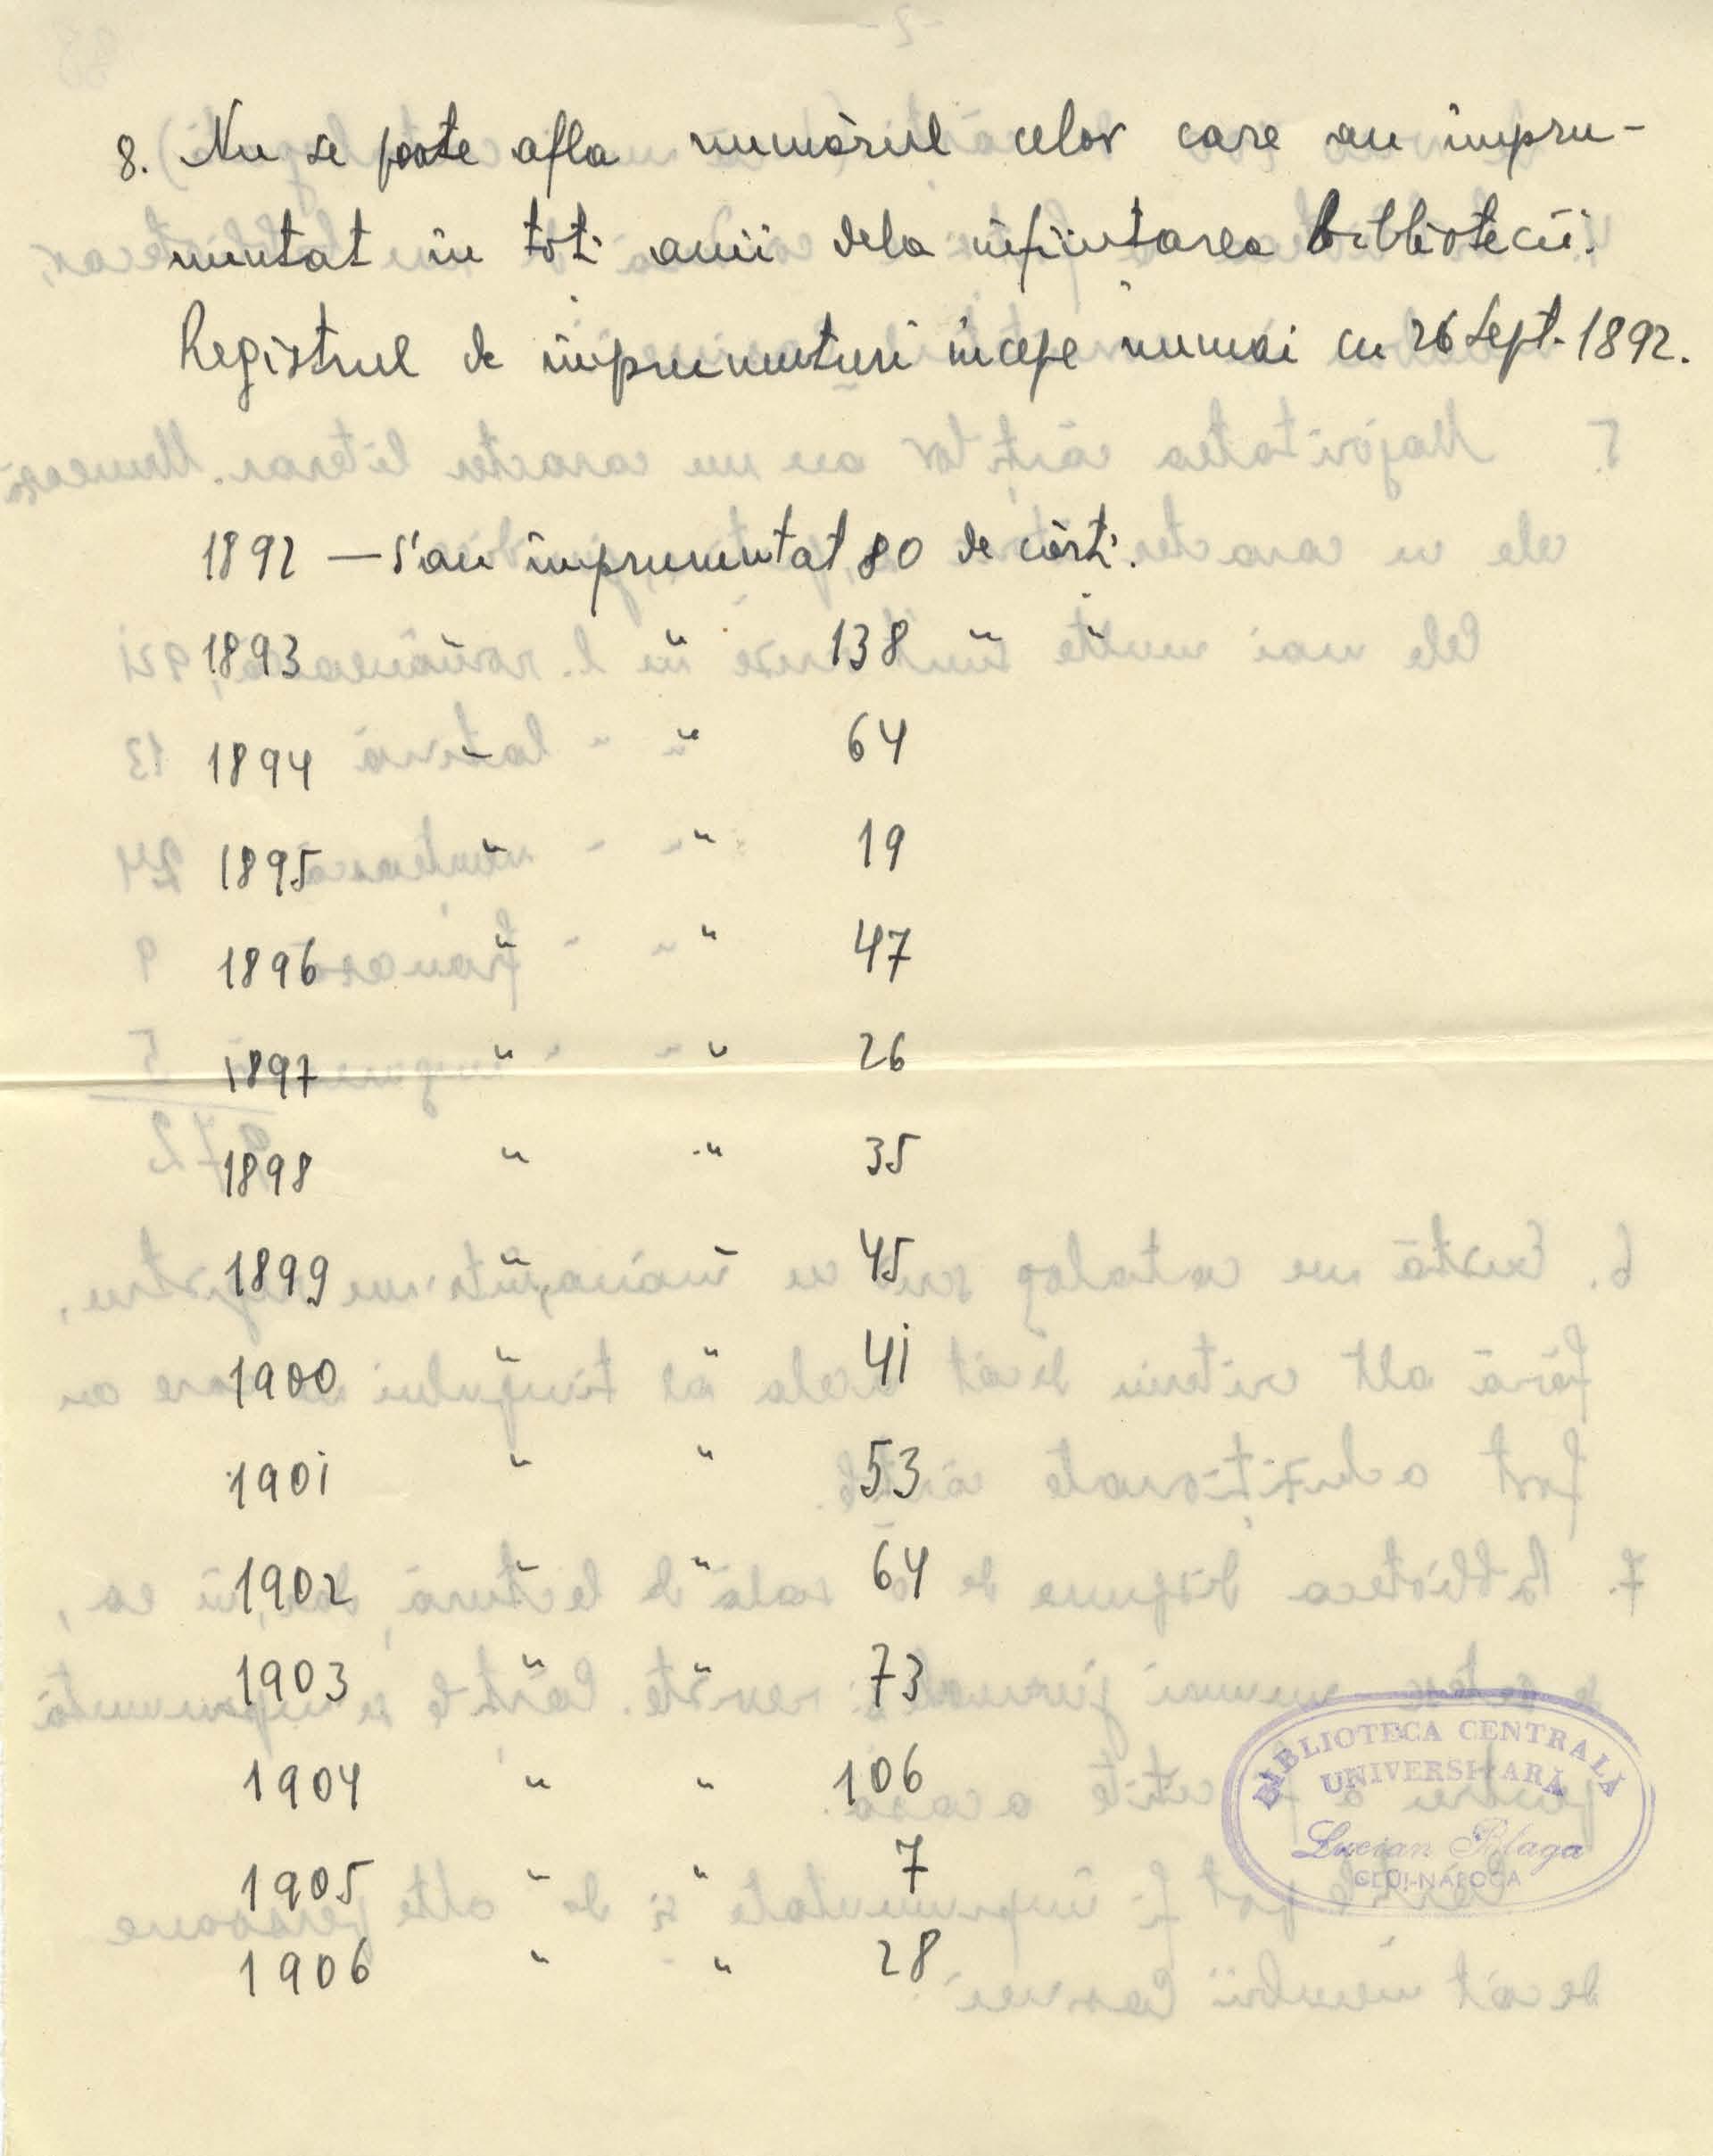 8. Nu se poate afla numărul celor care au împru-
mutat în toți anii dela înființarea bibliotecii.
Registrul de împrumuturi începe numai cu 26 Sept. 1892.
1892 — S'au împrumutat 80 de cărți.
1893 " " 138 " "
1894 " " 64
1895 " " 19
1896 " " 47
1897 " " 26
1898 " " 35
1899 " " 45
1900 " " 41
1901 " " 53
1902 " " 64
1903 " " 73
1904 " " 106
1905 " " 7
1906 " " 28
BIBLIOTECA CENTRALĂ
UNIVERSITARĂ
Lucian Blaga
CLUJ-NAPOCA